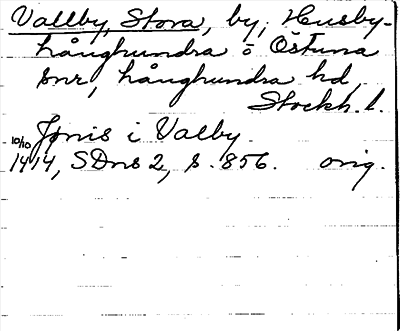 Vallby, Stora, by, Husby-
långhundra o Östuna
snr, långhundra hd,
Stockh. l.
Jønis i Valby.
10/10 1414, SDns 2, s. 856. orig.